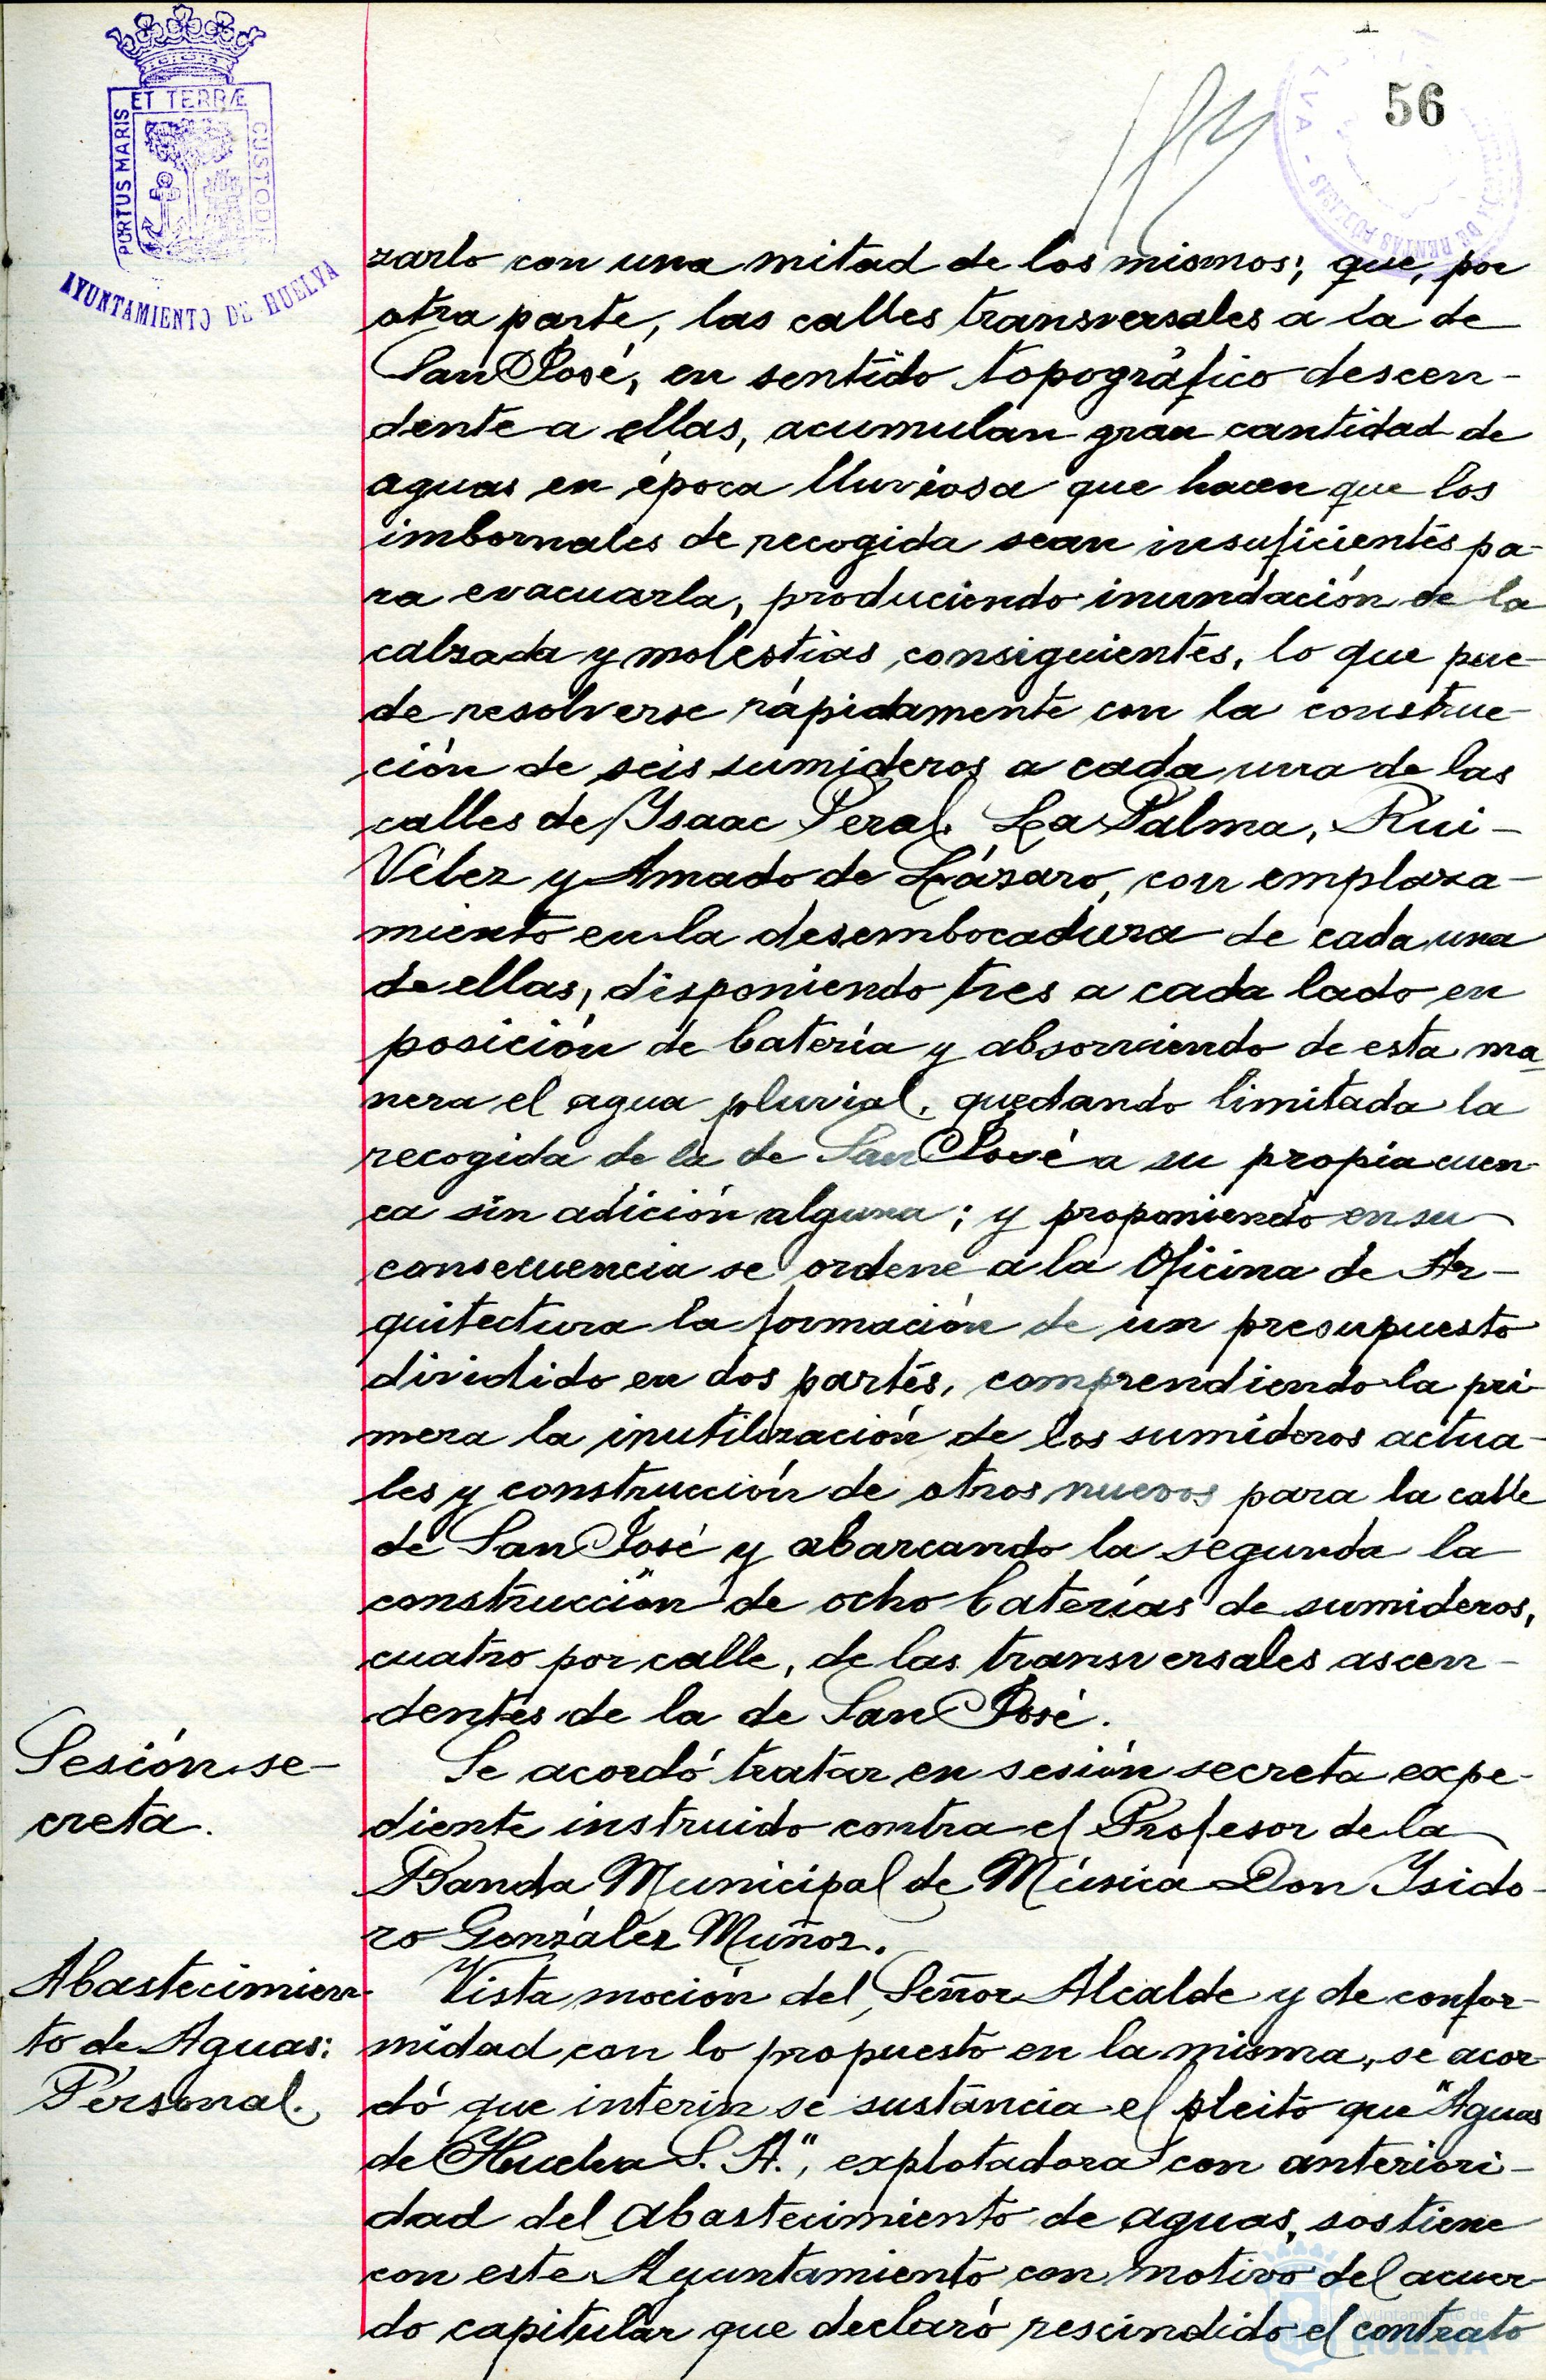 ET TERRÆ
PORTUS MARIS
CUSTODI
AYUNTAMIENTO DE HUELVA
56
zarlo con una mitad de los mismos; que, por
otra parte, las calles transversales a la de
San José, en sentido topográfico descen-
dente a ellas, acumulan gran cantidad de
aguas en época lluviosa que hacen que los
imbornales de recogida sean insuficientes pa-
ra evacuarla, produciendo inundación de la
calzada y molestias consiguientes, lo que pue-
de resolverse rápidamente con la construc-
ción de seis sumideros a cada una de las
calles de Isaac Peral, La Palma, Rui-
Vélez y Amado de Lázaro, con emplaza-
miento en la desembocadura de cada una
de ellas, disponiendo tres a cada lado en
posición de batería y absorviendo de esta ma-
nera el agua pluvial, quedando limitada la
recogida de la de San José a su propia cuen-
ca sin adición alguna; y proponiendo en su
consecuencia se ordene a la Oficina de Ar-
quitectura la formación de un presupuesto
dividido en dos partes, comprendiendo la pri-
mera la inutilización de los sumideros actua-
les y construcción de otros nuevos para la calle
de San José y abarcando la segunda la
construcción de ocho baterías de sumideros,
cuatro por calle, de las transversales ascen-
dentes de la de San José.
Sesión se-
creta.
Se acordó tratar en sesión secreta expe-
diente instruido contra el Profesor de la
Banda Municipal de Música Don Isido-
ro González Muñoz.
Abastecimien-
to de Aguas:
Personal.
Vista moción del Señor Alcalde y de confor-
midad con lo propuesto en la misma, se acor-
dó que interin se sustancia el pleito que "Aguas
de Huelva S. A.", explotadora con anteriori-
dad del abastecimiento de aguas, sostiene
con este Ayuntamiento con motivo del acuer-
do capitular que declaró rescindido el contrato
Ayuntamiento de
HUELVA